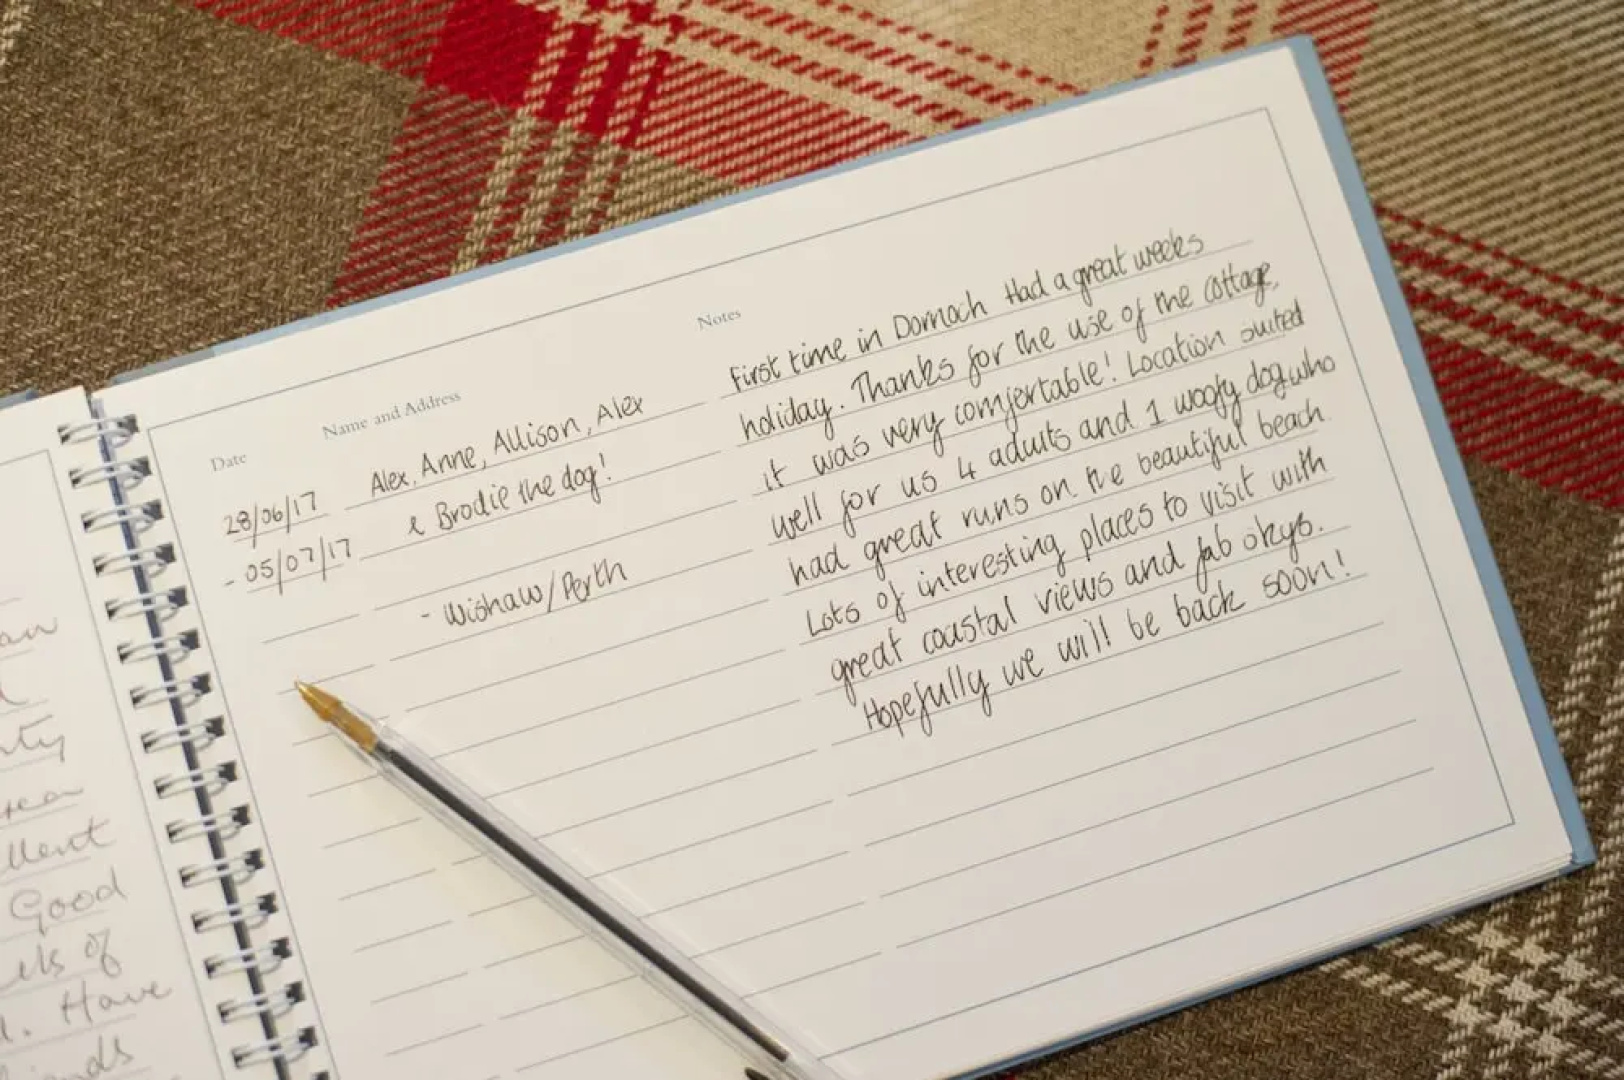 an
nty
llent
Good
els of
. Have
iends
Date
Name and Address
Notes
28/06/17
- 05/07/17
Alex, Anne, Allison, Alex
& Brodie the dog!
- Wishaw/Perth
First time in Dornoch Had a great weeks
holiday. Thanks for the use of the cottage,
it was very comfortable! Location suited
well for us 4 adults and 1 woofy dog who
had great runs on the beautiful beach.
Lots of interesting places to visit with
great coastal views and fab skys.
Hopefully we will be back soon!